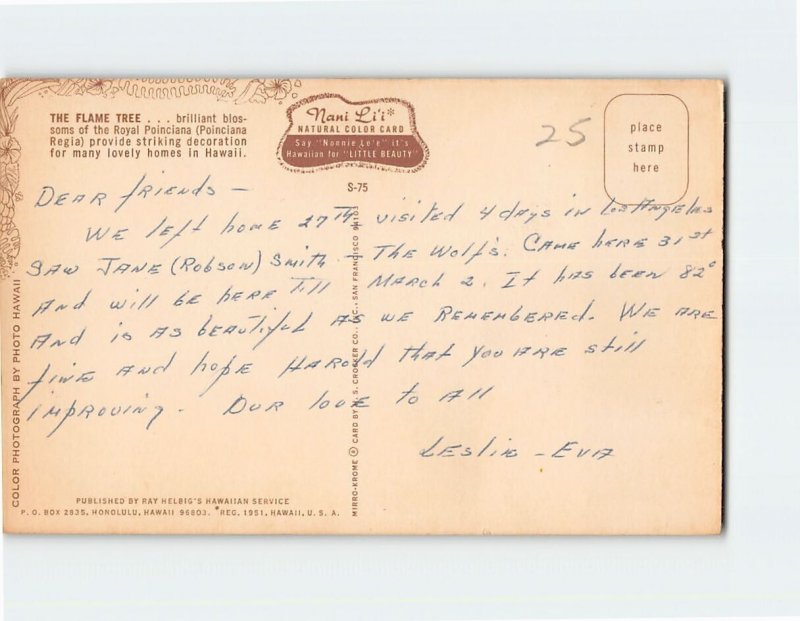 THE FLAME TREE . . . brilliant blos-
soms of the Royal Poinciana (Poinciana
Regia) provide striking decoration
for many lovely homes in Hawaii.
Nani Li'i*
NATURAL COLOR CARD
Say "Nonnie Le'e" it's
Hawaiian for "LITTLE BEAUTY"
S-75
25
place
stamp
here
DEAR friends —
WE left home 27TH visited 4 days in Los Angeles
SAW JANE (Robson) Smith — THE Wolfs. CAME here 31st
And will be here Till March 2. It has been 82°
And is as beautiful as we Remembered. We are
fine and hope Harold that you are still
improving. Our love to All
Leslie — Eva
COLOR PHOTOGRAPH BY PHOTO HAWAII
MIRRO-KROME ® CARD BY H. S. CROCKER CO., INC., SAN FRANCISCO 94103
PUBLISHED BY RAY HELBIG'S HAWAIIAN SERVICE
P. O. BOX 2835, HONOLULU, HAWAII 96803. *REG. 1951, HAWAII, U. S. A.